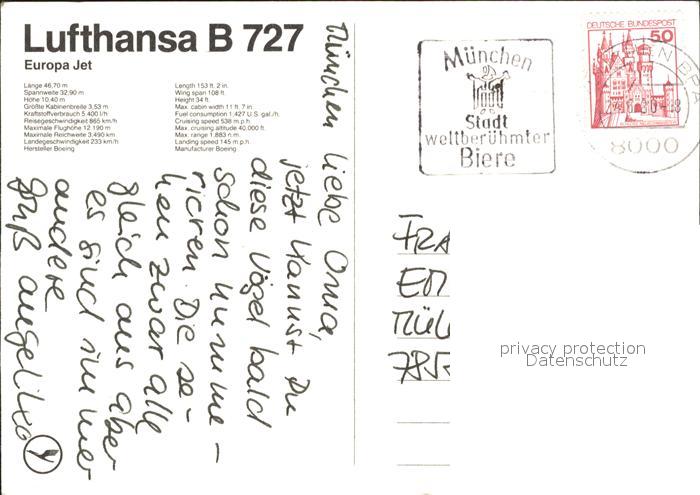 Lufthansa B 727
Europa Jet
Länge 46,70 m
Spannweite 32,90 m
Höhe 10,40 m
Größte Kabinenbreite 3,53 m
Kraftstoffverbrauch 5.400 l/h
Reisegeschwindigkeit 865 km/h
Maximale Flughöhe 12.190 m
Maximale Reichweite 3.490 km
Landegeschwindigkeit 233 km/h
Hersteller Boeing
Length 153 ft. 2 in.
Wing span 108 ft.
Height 34 ft.
Max. cabin width 11 ft. 7 in
Fuel consumption 1,427 U.S. gal./h.
Cruising speed 538 m.p.h.
Max. cruising altitude 40.000 ft.
Max. range 1.883 n.m.
Landing speed 145 m.p.h.
Manufacturer Boeing
München liebe Oma,
jetzt kannst Du
diese Vögel bald
schon numme-
rieren. Die se-
hen zwar alle
gleich aus aber
es sind immer
andere
Gruß Angelika
München
Stadt
weltberühmter
Biere
DEUTSCHE BUNDESPOST
50
8000
FRA
EM
MÜL
785
privacy protection
Datenschutz